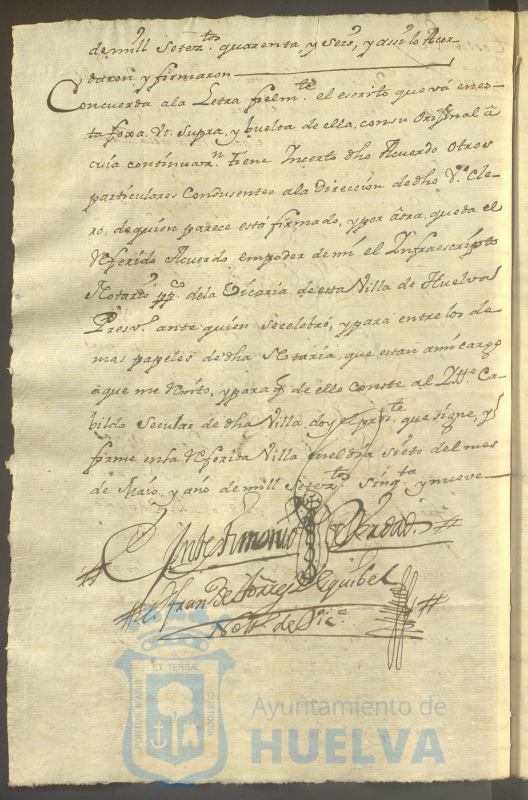 de mill Setez.tos quarenta, y seis, y assi lo Acor-
daron y firmaron
Concuerda ala Letra fielm.te el escrito que vá enes-
ta foxa Vt. Supra, y buelta de ella, con su Original â
cuia continuaz.n tiene Incerto dho Acuerdo otros
particulares Condusentes ala Dirección de dho V.e Cle-
ro, de quien parece está firmado, y por aôra, queda el
Referido Acuerdo em poder de mi el Ynfraescripto
Notario pp.co de la Vicaria de esta Villa de Huelva
Presv.o ante quien se celebró, y para entre los de
mas papeles de dha Notaria, que estan ami cargo
aque me Remito, y para q de ello Conste al Ylt.e Ca-
bildo Secular de dha Villa, doy el pres.te que signe, y
firme en la Referida Villa en el dia Siete del mes
de Maio, y año de mill Setez.tos Sinq.ta y nueve
En testimonio de Verdad.
Fran.co de Torres Esquibel
Nott.o de Vic.a
PORTUS MARIS ET TERRAE CUSTODIA
Ayuntamiento de
HUELVA